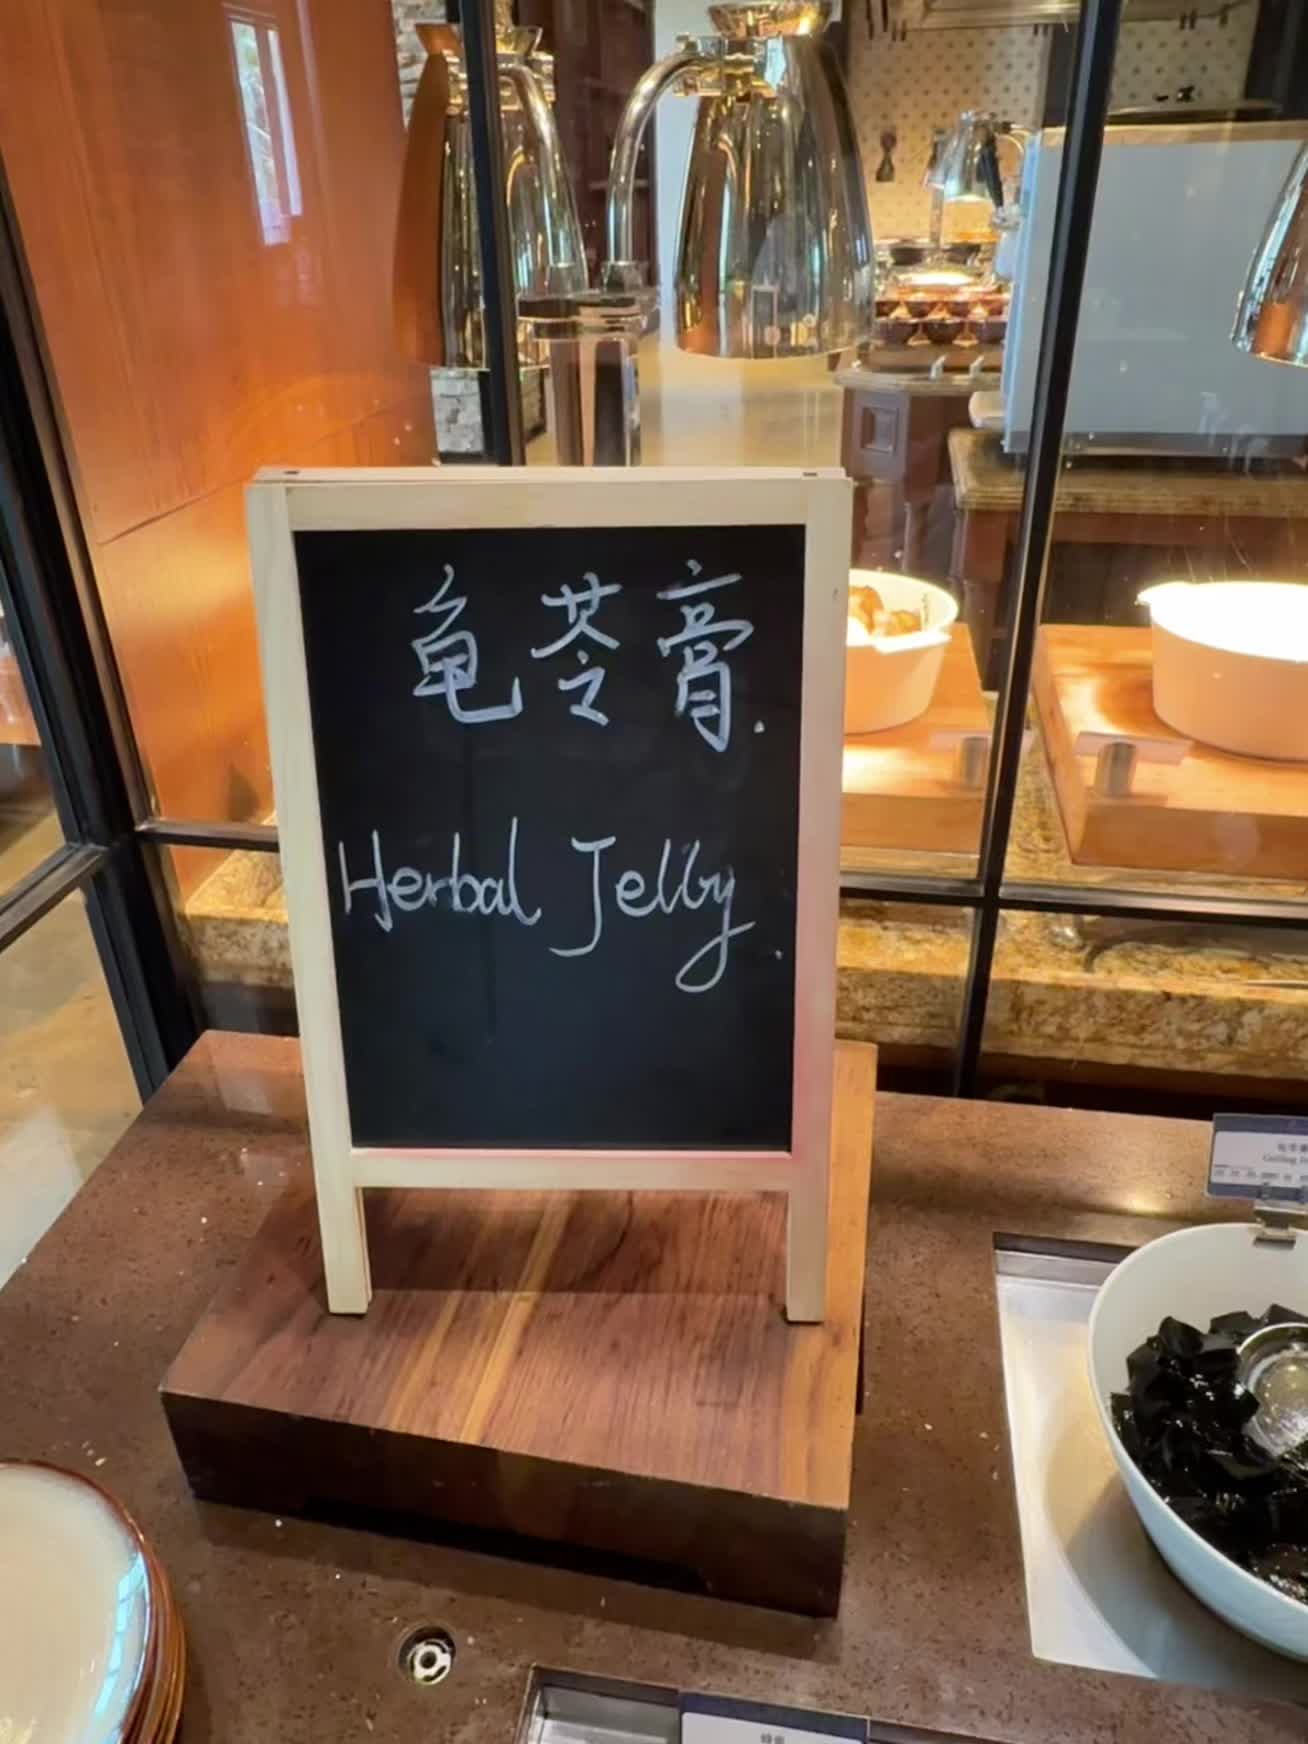 龟苓膏.
Herbal Jelly.